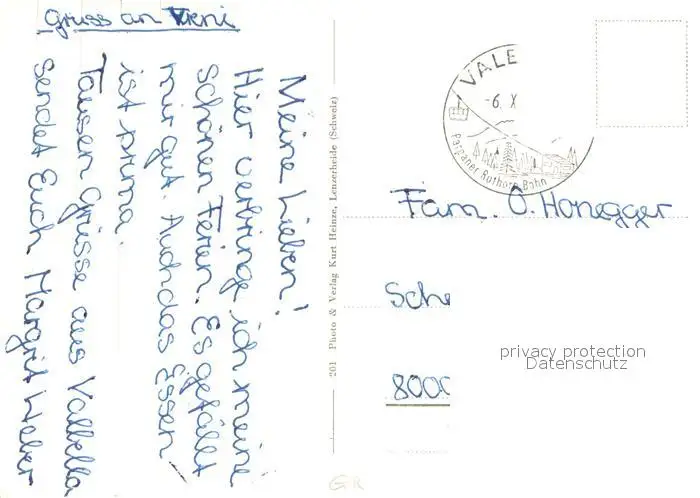 Gruss an Vreni
Meine Lieben!
Hier verbringe ich meine
schönen Ferien. Es gefällt
mir gut. Auch das Essen
ist prima.
Tausen Grüsse aus Valbella
sendet Euch Margrit Weber
201 Photo & Verlag Kurt Heinze, Lenzerheide (Schweiz)
VALE
-6. X
Parpaner Rothorn Bahn
Fam. O. Honegger
Sch
8000
privacy protection
Datenschutz
GR